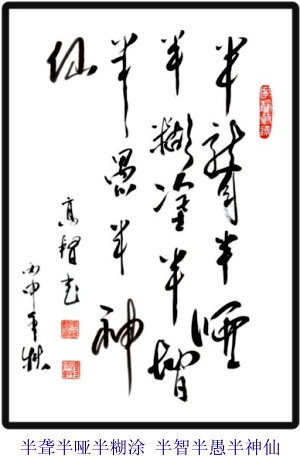 半聾半啞
半糊塗半智
半愚半神
仙
高智
丙申年秋
半聋半哑半糊涂 半智半愚半神仙